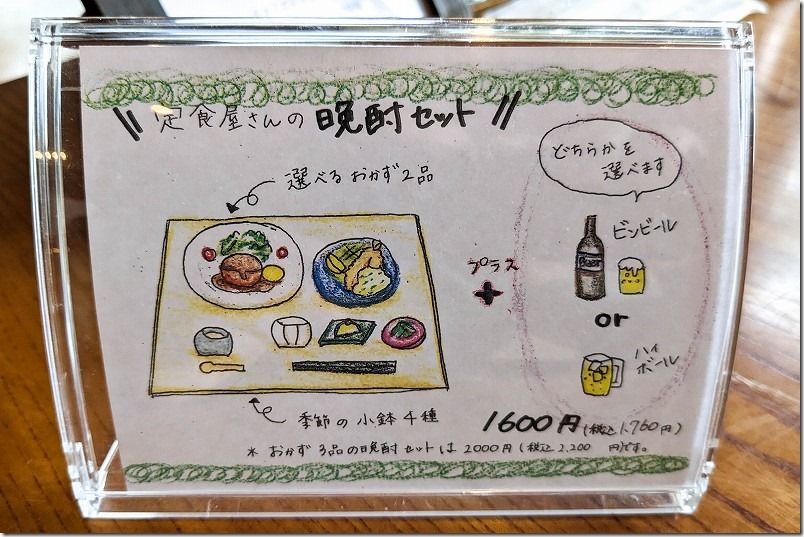 定食屋さんの晩酌セット
どちらかを
選べます
選べるおかず2品
ビンビール
Beer
プラス
+
or
ハイ
ボール
季節の小鉢4種
1600円(税込1,760円)
※おかず3品の晩酌セットは2000円(税込2,200円)です。